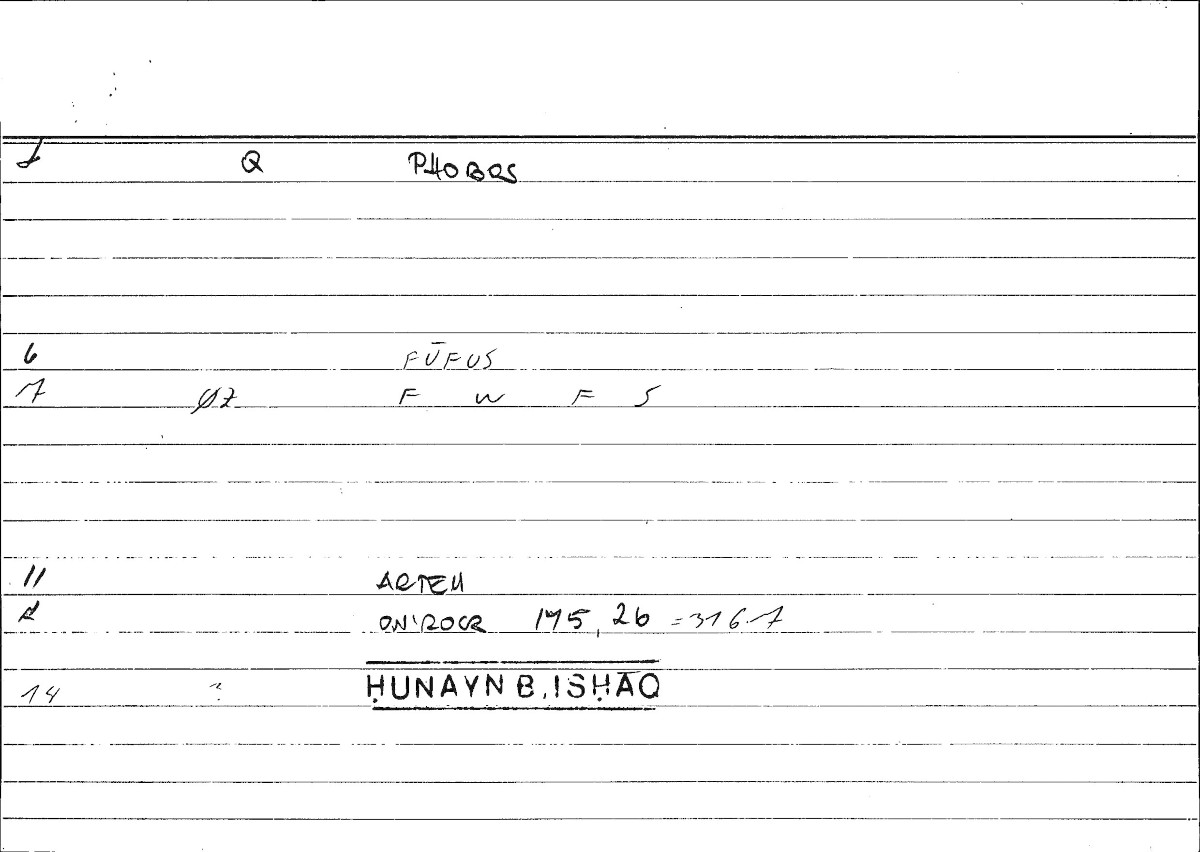 1 Q PHOBOS
6 FŪFUS
7 ØZ F W F S
11 ARTEM
12 ONIROCR 175, 26 = 316.7
14 " ḤUNAYN B. ISḤĀQ